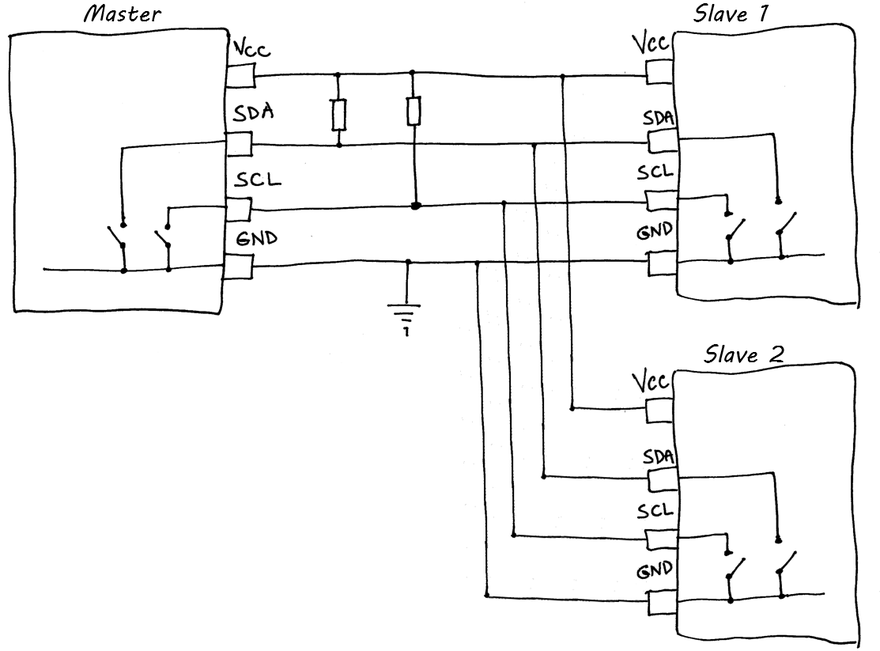 Master
Vcc
SDA
SCL
GND
Slave 1
Vcc
SDA
SCL
GND
Slave 2
Vcc
SDA
SCL
GND